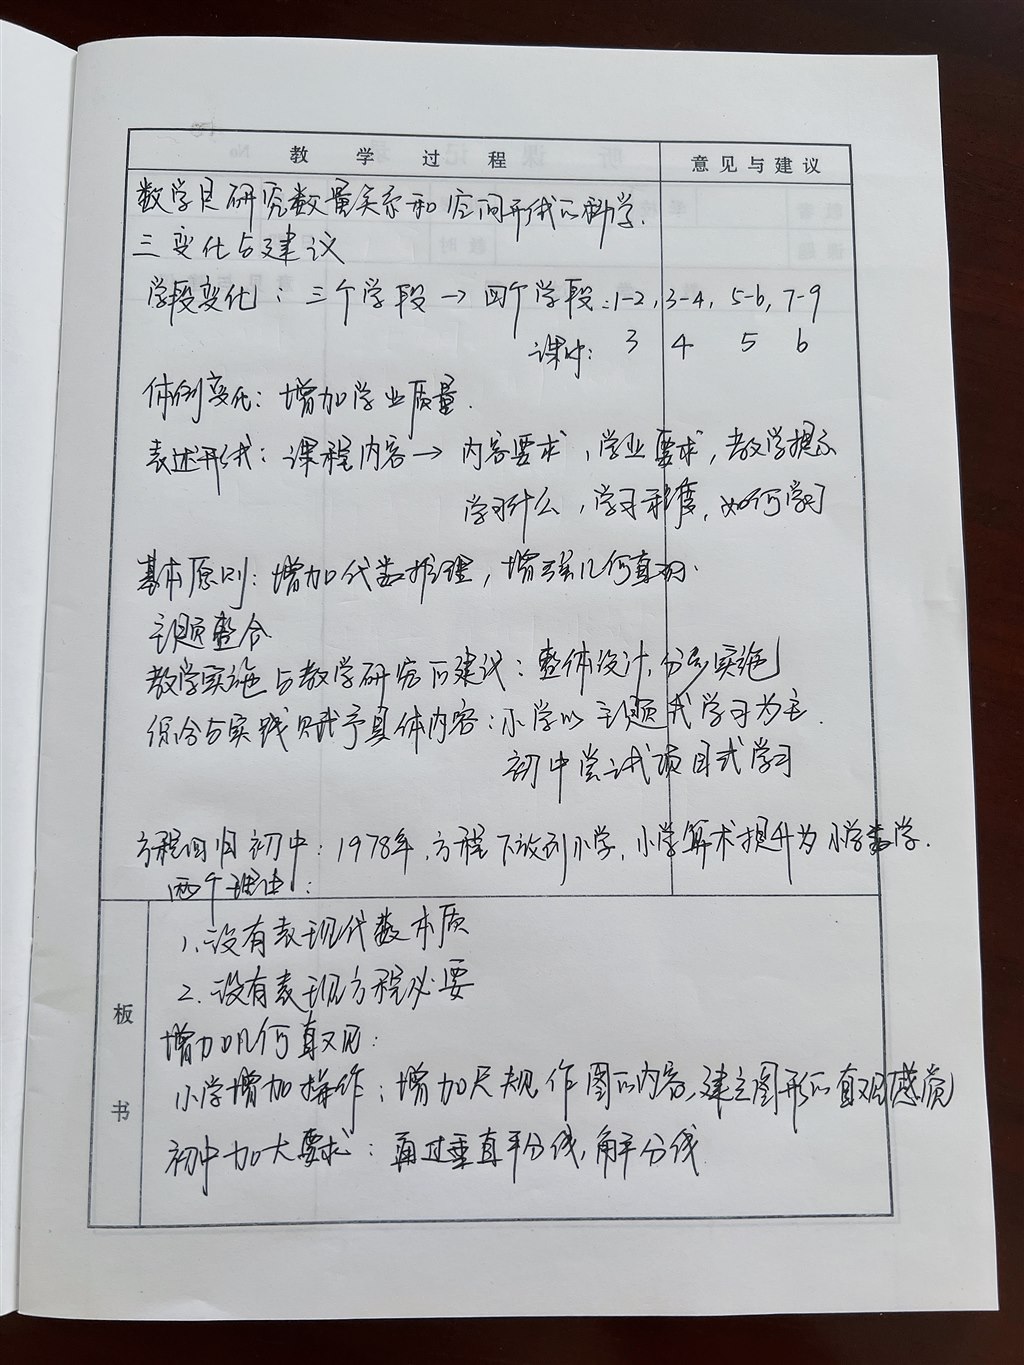 教学过程 意见与建议
数学是研究数量关系和空间形式的科学.
三 变化与建议
学段变化：三个学段→四个学段：1-2, 3-4, 5-6, 7-9
3 4 5 6
体例变化：增加学业质量.
表述形式：课程内容→内容要求，学业要求，教学提示
学习什么，学习程度，如何学习
基本原则：增加代数推理，增强几何直观.
主题整合
教学实施与教学研究的建议：整体设计，分步实施
综合与实践赋予具体内容：小学以主题式学习为主.
初中尝试项目式学习
方程回归初中：1978年，方程下放到小学，小学算术提升为小学数学.
两个理由：
1. 没有表现代数本质
2. 没有表现方程必要
增加几何直观：
小学增加操作：增加尺规作图的内容，建立图形的直观感觉
初中加大要求：通过垂直平分线，角平分线
板书